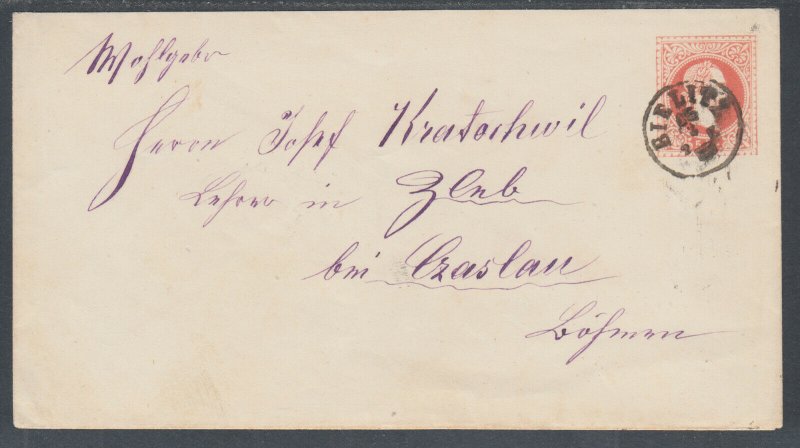 Wohlgebor
Herrn Josef Kratochwil
Lehrer in Zleb
bei Czaslau
Böhmen
BIELITZ